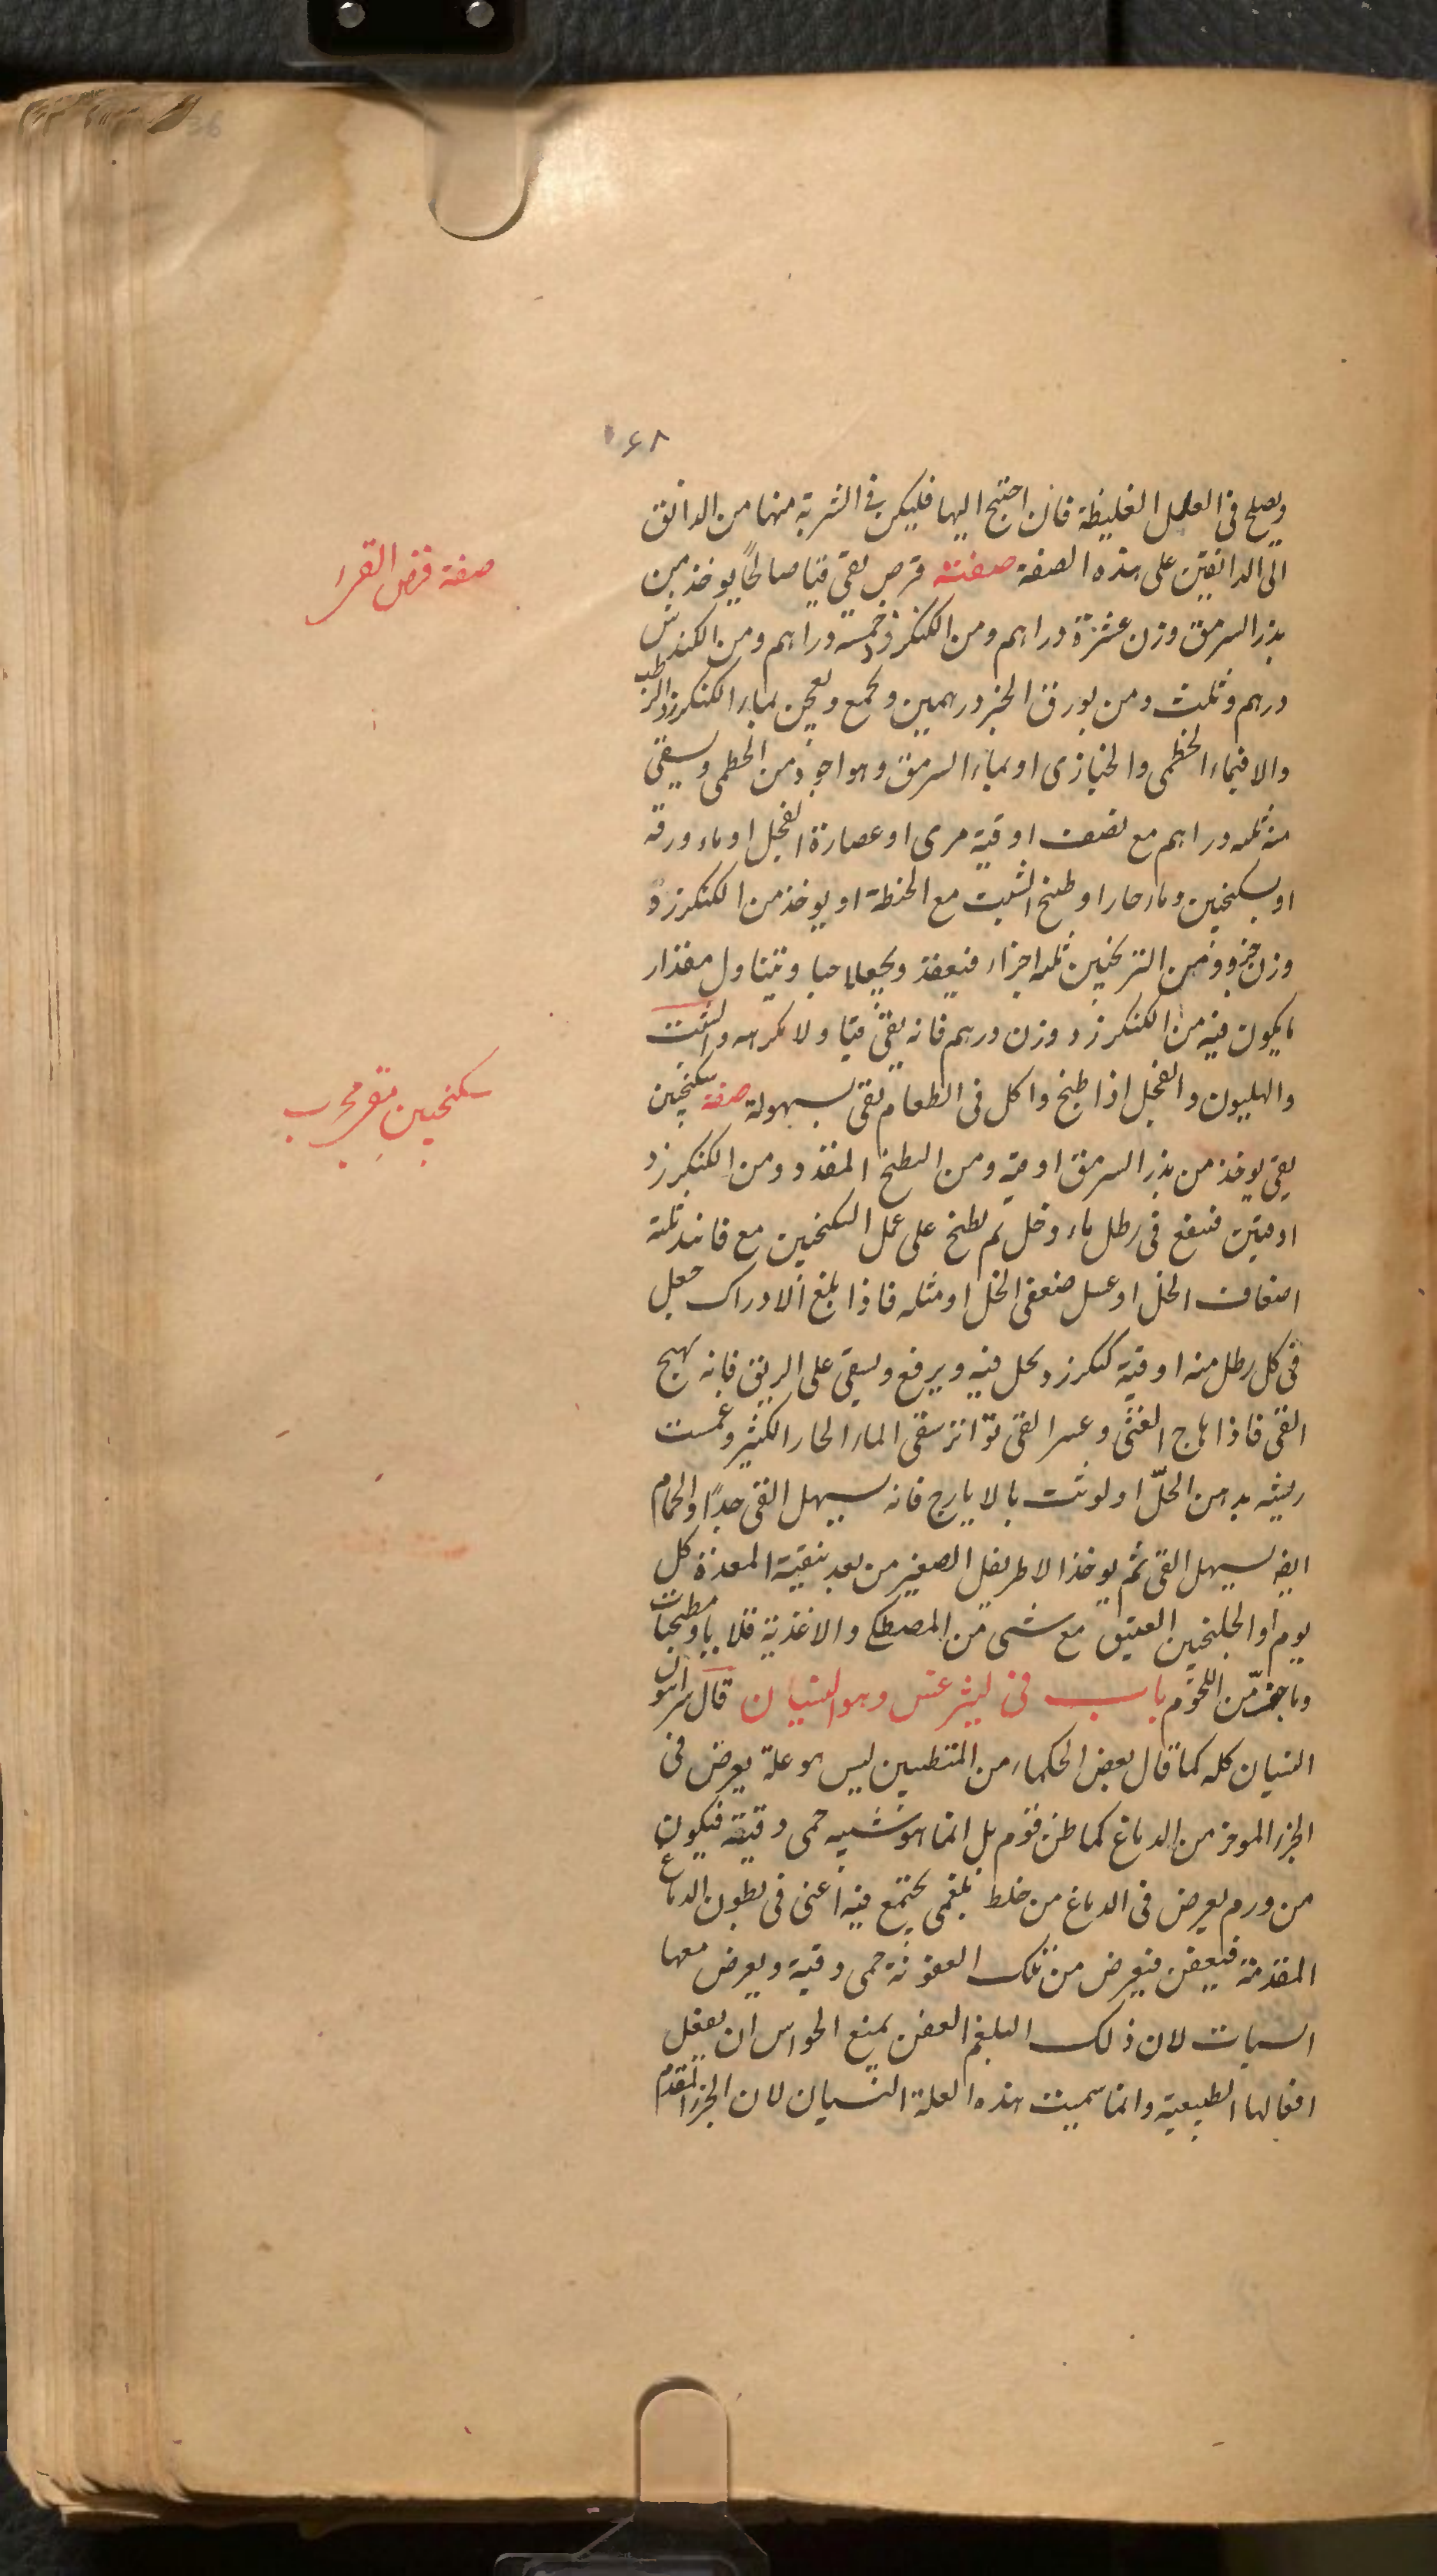 ۱۶۸
ويصلح فى العلل الغليظة فان احتيج اليها فليكن فى الشربة منها من الدانق
الى الدانقين على هذه الصفة صفته قرص يقى قيا صالحًا يوخذ من
بذر السرمق وزن عشرة دراهم ومن الكنكرزد خمسة دراهم ومن الكندش
درهم وثلث ومن بورق الخبز درهمين ويجمع ويعجن بماء الكنكرزد الرطب
والا فبماء الخطمى والخبازى او بماء السرمق وهو اجود من الخطمى ويسقى
منه ثلثه دراهم مع نصف اوقية مرى او عصارة الفجل او ماء ورقه
او بسكنجبين وماء حار او طبخ الشبت مع الحنطة او يوخذ من الكنكرزد
وزن جزو ومن الترنجبين ثلثه اجزاء فيعقد ويجعل حبا ويتناول مقدار
ما يكون فيه من الكنكرزد وزن درهم فانه يقى قيا ولا يكربه والشبت
والهليون والفجل اذا طبخ واكل فى الطعام يقى بسهولة صفة سكنجبين
يقى يوخذ من بذر السرمق اوقية ومن البطيخ المقدد ومن الكنكرزد
اوقيتين فينقع فى رطل ماء وخل ثم يطبخ على عمل السكنجبين مع فانيد ثلثة
اضعاف الخل او عسل ضعفى الخل او مثله فاذا بلغ الادراك جعل
فى كل رطل منه اوقية كنكرزد يحل فيه ويرفع ويسقى على الريق فانه يهيج
القى فاذا هاج الغثى وعسر القى تواتر سقى الماء الحار الكثير وغمست
ريشه بدهن الحلّ او لوثت بالايارج فانه يسهل القى جدًا والحمام
ايضه يسهل القى ثم يوخذ الاطريفل الصغير من بعد تنقية المعدة كل
يوم او الجلنجبين العتيق مع شى من المصطكى والاغذية قلايا ومطجنات
وما خفّ من اللحوم باب فى ليثرغس وهو النسيان قال سرابيون
النسيان كله كما قال بعض الحكماء من المتطببين ليس هو علة يعرض فى
الجزء الموخر من الدماغ كما ظن قوم بل انما هو شبيه حمى دقيقة فيكون
من ورم يعرض فى الدماغ من خلط بلغمى يجتمع فيه اعنى فى بطون الدماغ
المقدمة فيعفن فيعرض من تلك العفونة حمى دقية ويعرض معها
السبات لان ذلك البلغم العفن يمنع الحواس ان يفعل
افعالها الطبيعية وانما سميت هذه العلة النسيان لان الجزء المقدم
صفة قرص القى
سكنجبين مقى مجرب